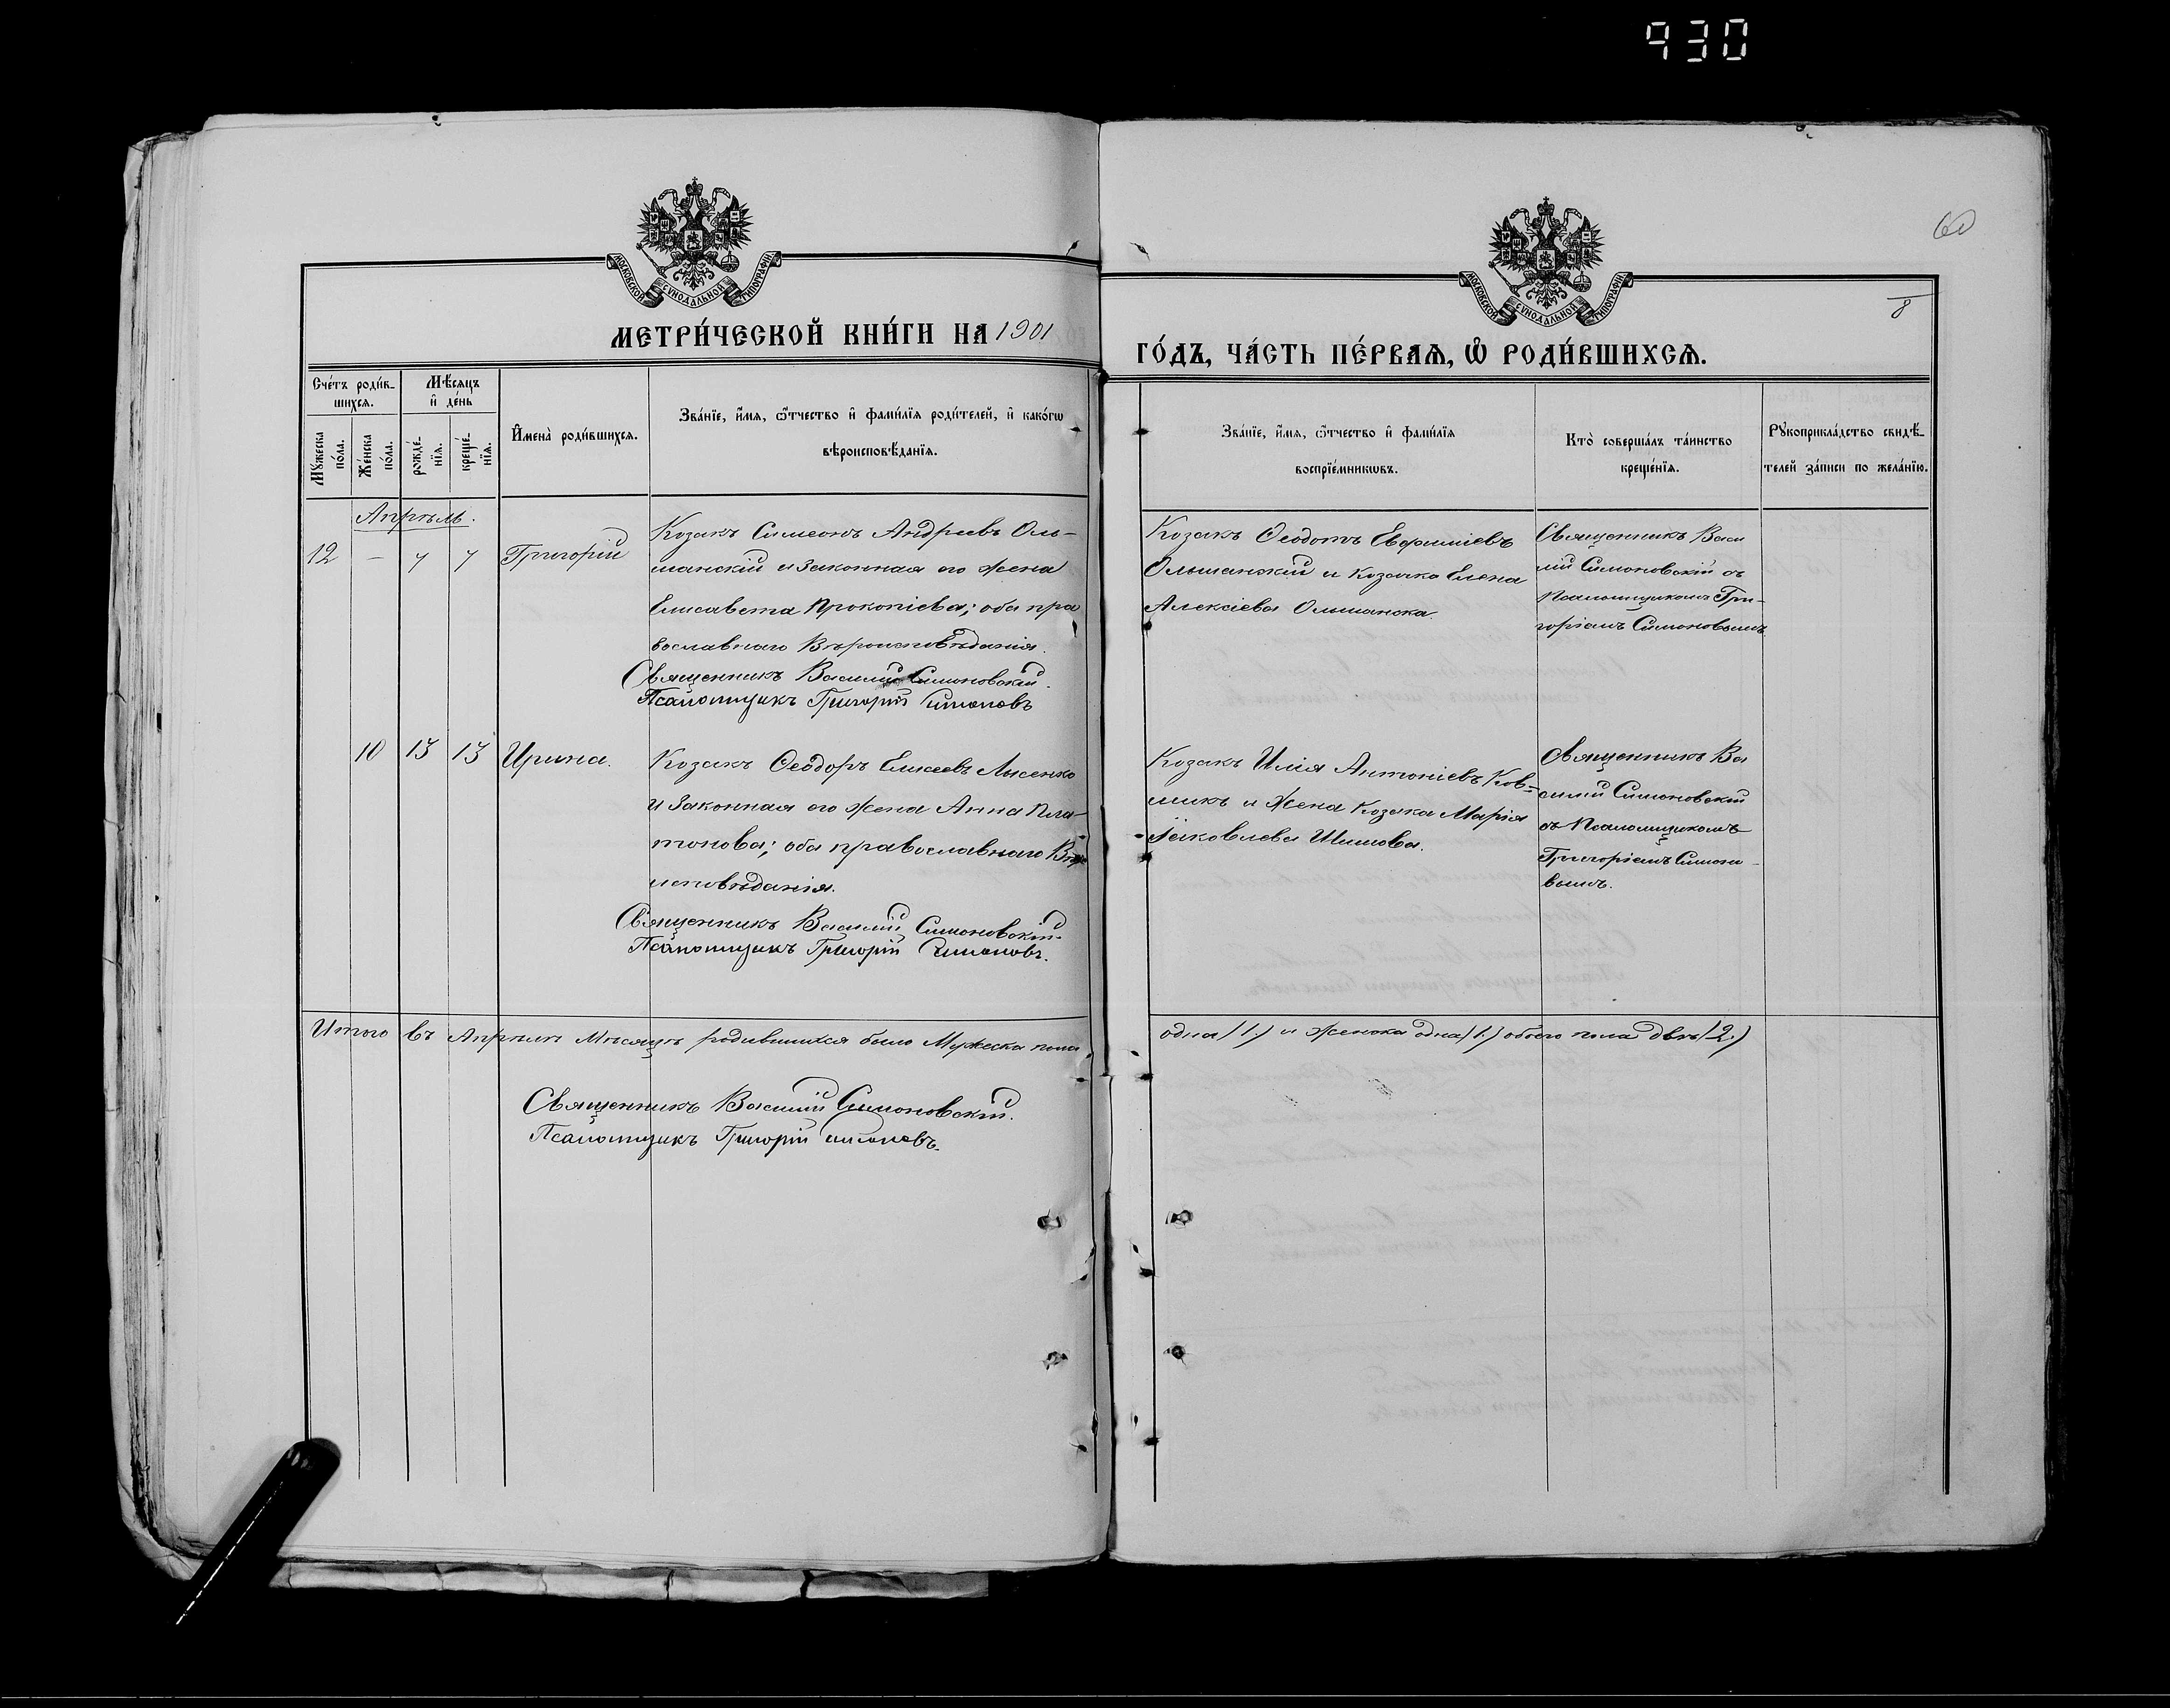 930
60
8
МОСКОВСКОЙ СѴНОДАЛЬНОЙ ТИПОГРАФІИ
МОСКОВСКОЙ СѴНОДАЛЬНОЙ ТИПОГРАФІИ
МЕТРИ́ЧЕСКОЙ КНИ́ГИ НА 1901
ГО́ДЪ, ЧА́СТЬ ПЕ́РВАѦ, Ѡ҆ РОДИ́ВШИХСѦ.
Сче́тъ роди́в-
шихсѧ.
Мѣ́сѧцъ
и҆ де́нь
Мꙋ́жеска
по́ла.
Же́нска
по́ла.
рожде́-
нїѧ.
креще́-
нїѧ.
И҆мена̀ роди́вшихсѧ.
Зва́нїе, и҆́мѧ, ѻ҆́тчество и҆ фами́лїѧ роди́телей, и҆ како́гѡ
вѣроисповѣ́данїѧ.
Зва́нїе, и҆́мѧ, ѻ҆́тчество и҆ фами́лїѧ
воспрїе́мникѡвъ.
Кто̀ соверша́лъ та́инство
креще́нїѧ.
Рꙋкоприкла́дство свидѣ́-
телей за́писи по жела́нїю.
Апрѣль.
12 — 7 7 Григорій
Козакъ Симеонъ Андреевъ Оль-
шанскій и законная его жена
Елисавета Прокопіева; оба пра
вославнаго Вѣроисповѣданія.
Священникъ Василій Симоновскій.
Псаломщикъ Григорій Симоновъ
Козакъ Ѳеодотъ Евфиміевъ
Ольшанскій и козачка Елена
Алексіева Ольшанска.
Священникъ Васи
лій Симоновскій съ
Псаломщикомъ Гри-
горіемъ Симоновымъ
10 13 13 Ирина.
Козакъ Ѳеодоръ Елисеевъ Лысенко
и законная его жена Анна Пла-
тонова; оба православнаго Вѣро
исповѣданія.
Священникъ Василій Симоновскій.
Псаломщикъ Григорій Симоновъ.
Козакъ Илія Антоніевъ Ков-
шикъ и жена Козака Марія
Іаковлева Шишова.
Священникъ Ва
силій Симоновскій
съ Псаломщикомъ
Григоріемъ Симоно-
вымъ.
Итого въ Апрѣлѣ Мѣсяцѣ родившихся было Мужеска пола
одна (1.) и женска одна (1.) обоего пола двѣ (2.)
Священникъ Василій Симоновскій.
Псаломщикъ Григорій Симоновъ.